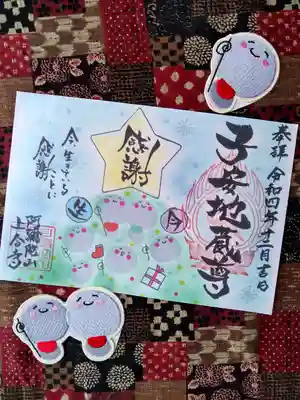 奉拝 令和四年十二月吉日
子安地蔵尊
感謝
今
生
今、生きている
ことに
感謝
阿弥陀山
上合寺